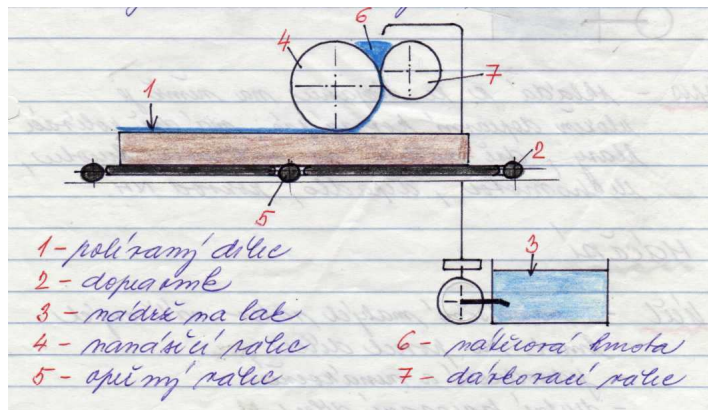 6
4
7
1
2
5
3
1 - polívaný dílec
2 - dopravník
3 - nádrž na lak
4 - nanášecí válec
5 - opěrný válec
6 - nátěrová hmota
7 - dávkovací válec